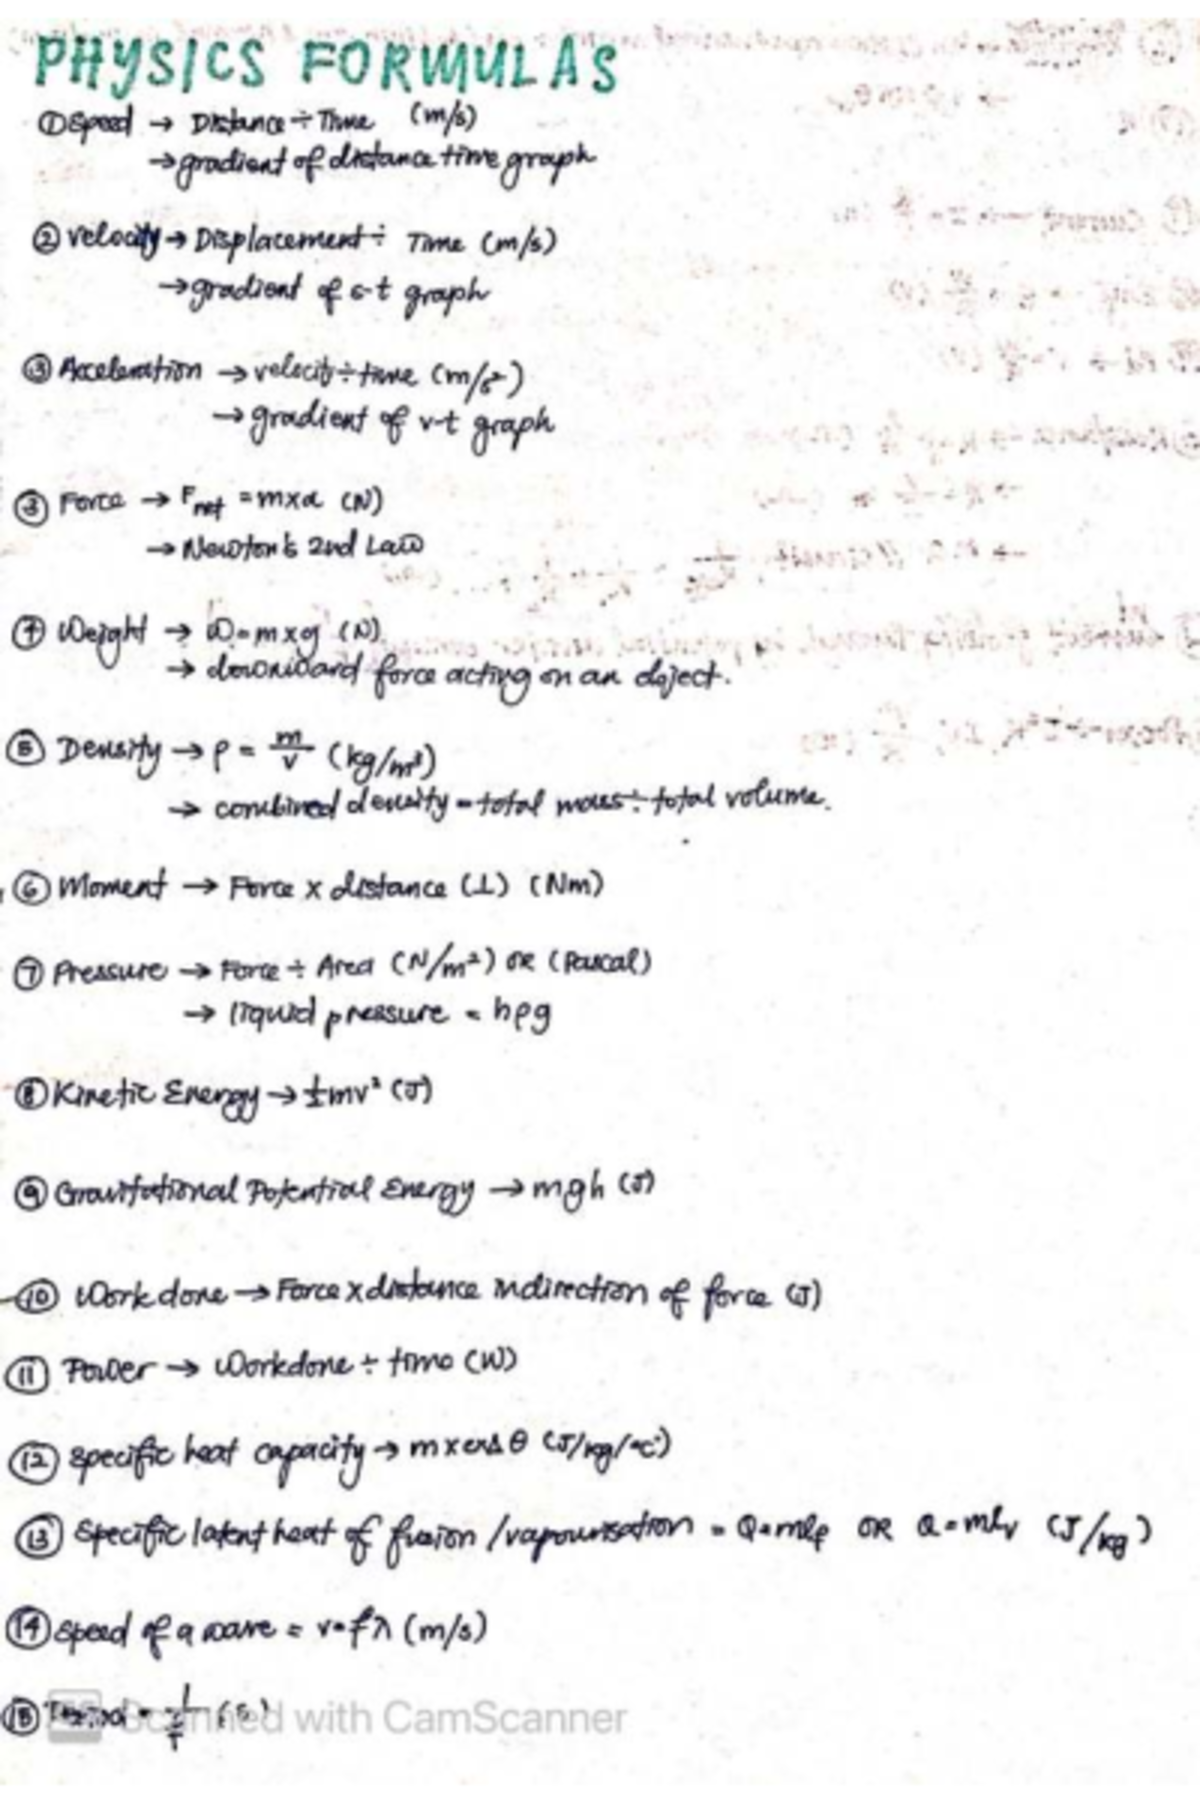 PHYSICS FORMULAS
① Speed → Distance ÷ Time (m/s)
→ gradient of distance time graph
② Velocity → Displacement ÷ Time (m/s)
→ gradient of s-t graph
③ Acceleration → velocity ÷ time (m/s²)
→ gradient of v-t graph
③ Force → Fnet = m x a (N)
→ Newton's 2nd Law
④ Weight → W = m x g (N)
→ downward force acting on an object.
⑤ Density → ρ = m/v (kg/m³)
→ combined density = total mass ÷ total volume.
⑥ Moment → Force x distance (⊥) (Nm)
⑦ Pressure → Force ÷ Area (N/m²) OR (Pascal)
→ liquid pressure = hρg
⑧ Kinetic Energy → ½mv² (J)
⑨ Gravitational Potential Energy → mgh (J)
⑩ Work done → Force x distance in direction of force (J)
⑪ Power → Workdone ÷ time (W)
⑫ Specific heat capacity → m x c x Δ θ (J/kg/°C)
⑬ Specific latent heat of fusion / vapourisation = Q = mlf OR Q = mlv (J/kg)
⑭ Speed of a wave = v = fλ (m/s)
⑮ Period = 1/f (s)
Scanned with CamScanner